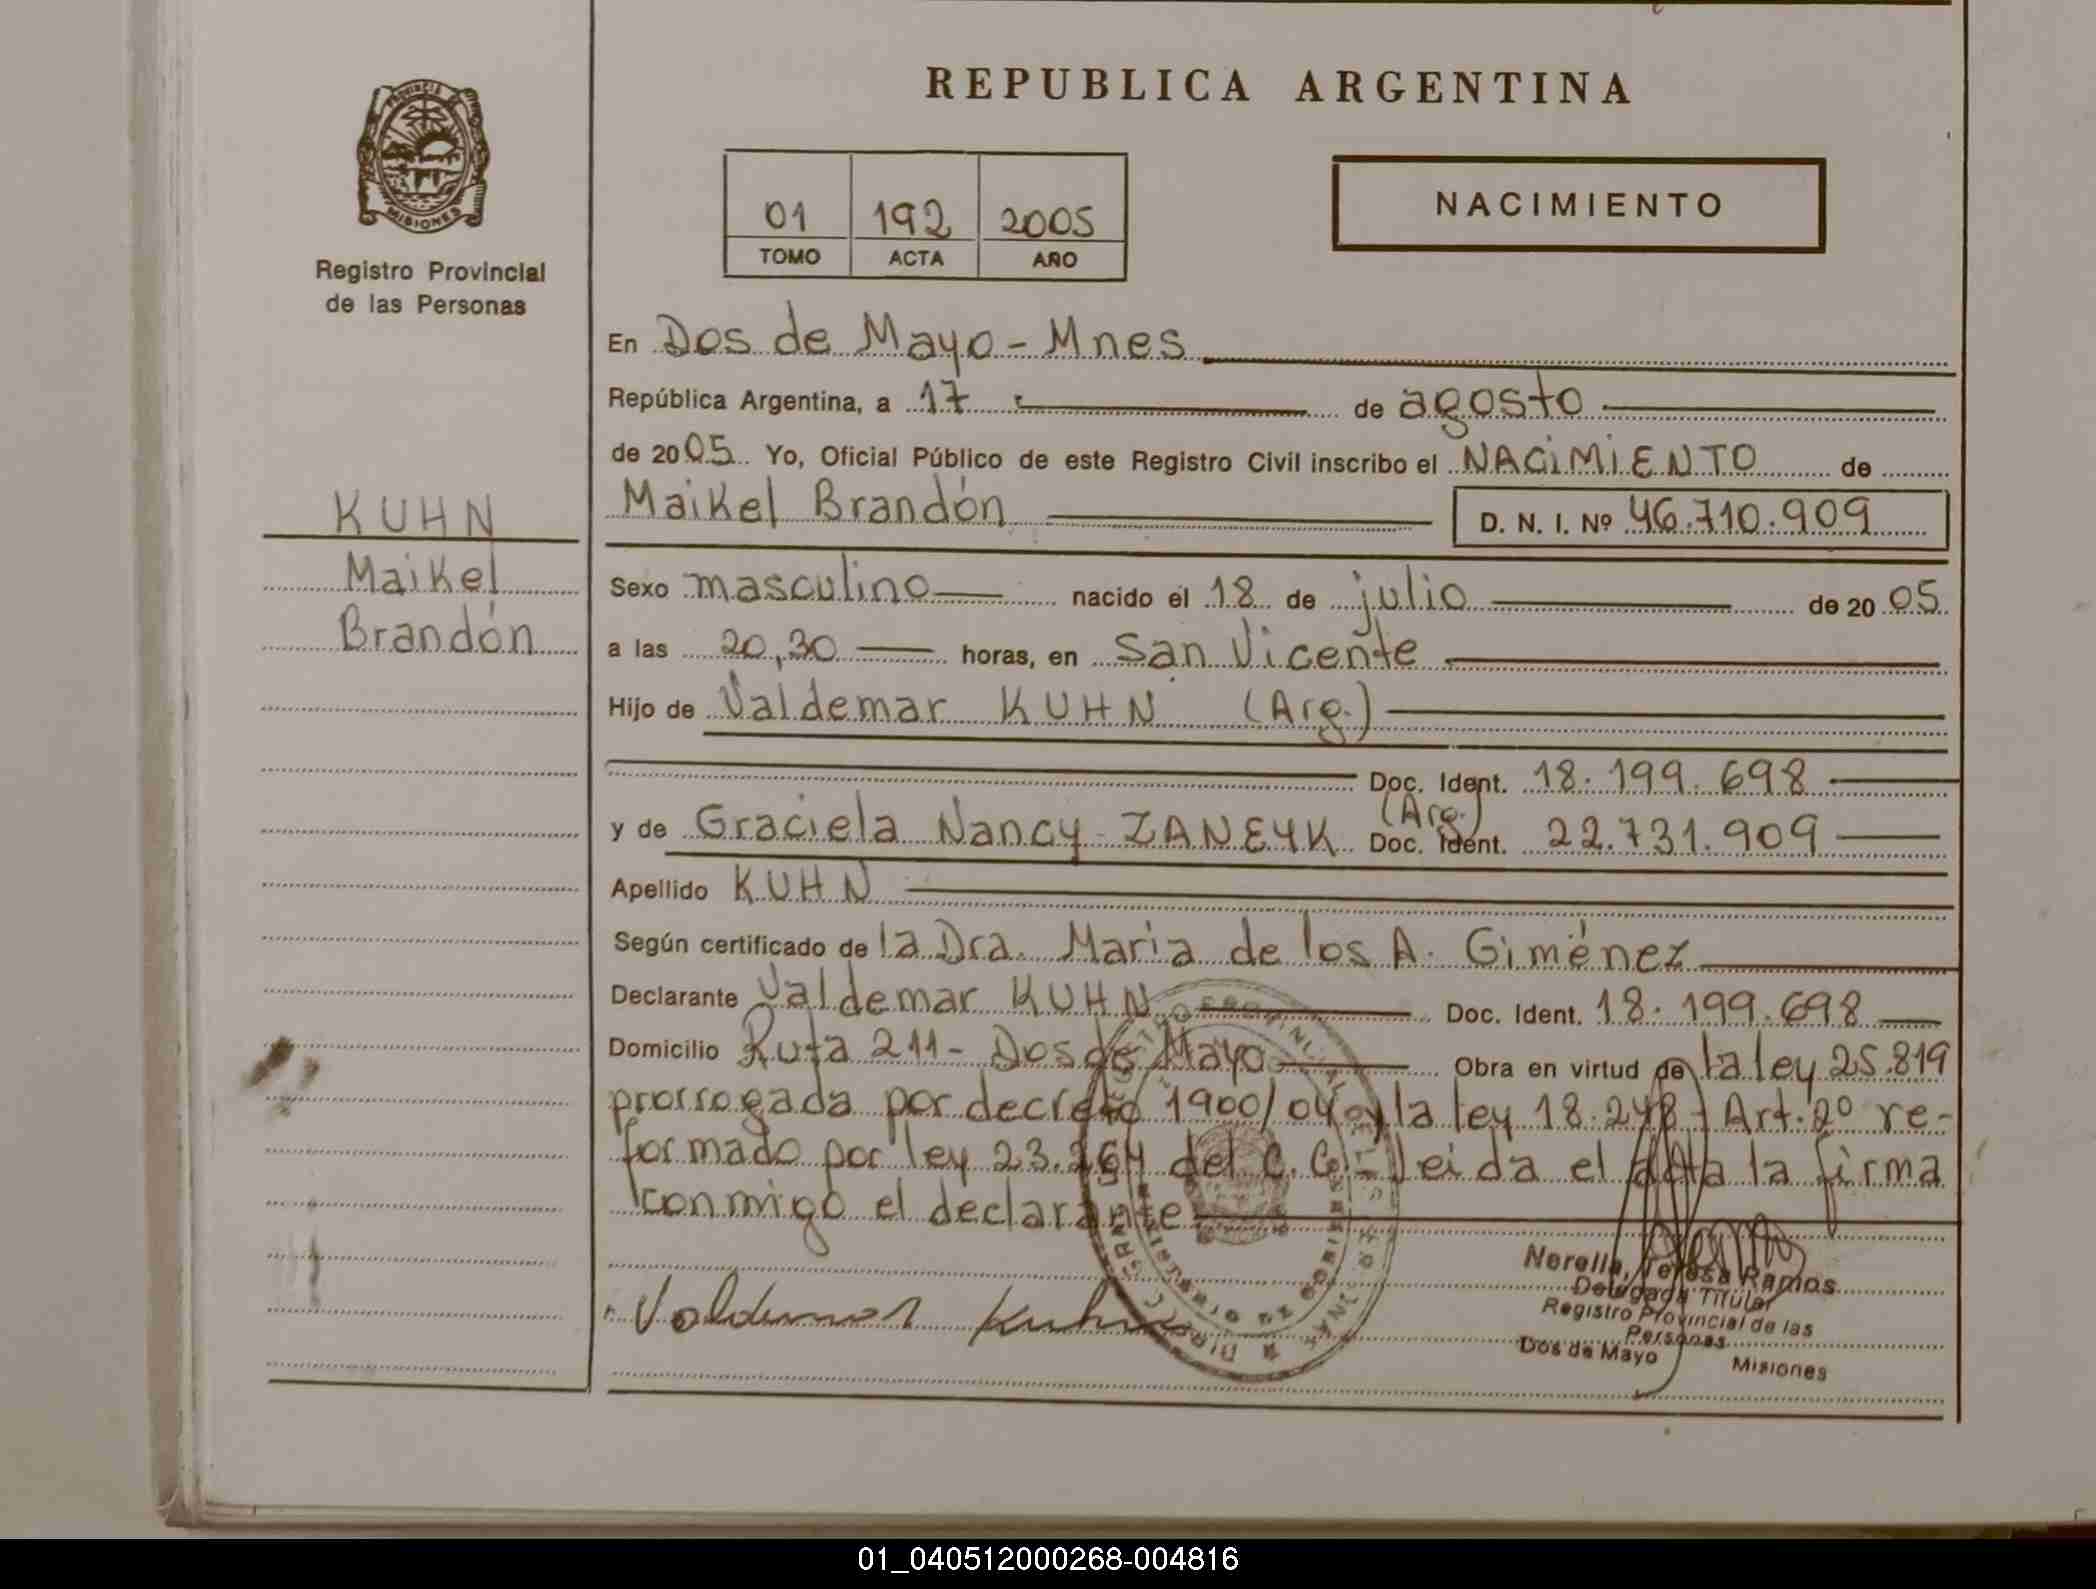 REPUBLICA ARGENTINA
PROVINCIA DE
MISIONES
Registro Provincial
de las Personas
01 192 2005
TOMO ACTA AÑO
NACIMIENTO
KUHN
Maikel
Brandón
En Dos de Mayo - Mnes
República Argentina, a 17 de agosto
de 2005 Yo, Oficial Público de este Registro Civil inscribo el NACIMIENTO de
Maikel Brandón D. N. I. Nº 46.710.909
Sexo masculino nacido el 18 de julio de 2005
a las 20,30 horas, en San Vicente
Hijo de Valdemar KUHN (Arg.)
Doc. Ident. 18.199.698
(Arg.)
y de Graciela Nancy ZANEYK Doc. Ident. 22.731.909
Apellido KUHN
Según certificado de la Dra. Maria de los A. Giménez
Declarante Valdemar KUHN Doc. Ident. 18.199.698
Domicilio Ruta 211 - Dos de Mayo Obra en virtud de la ley 25.819
prorrogada por decreto 1900/04 y la ley 18.248 - Art. 2º re-
formado por ley 23.264 del C. C. - Leida el acta la firma
conmigo el declarante
Valdemar Kuhn
Norella, Teresa Ramos
Delegada Titular
Registro Provincial de las
Personas
Dos de Mayo Misiones
01_040512000268-004816